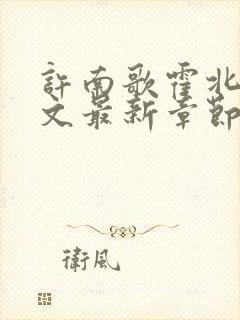 許南歌霍北
文最新章節
衛風